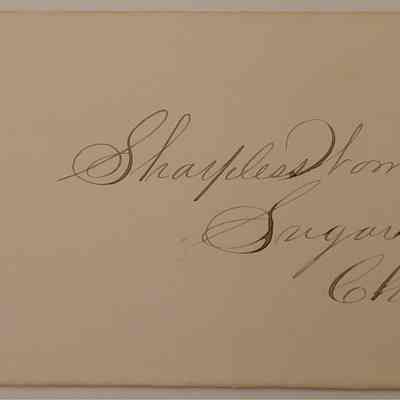 Sharpless
Sugar
Ch